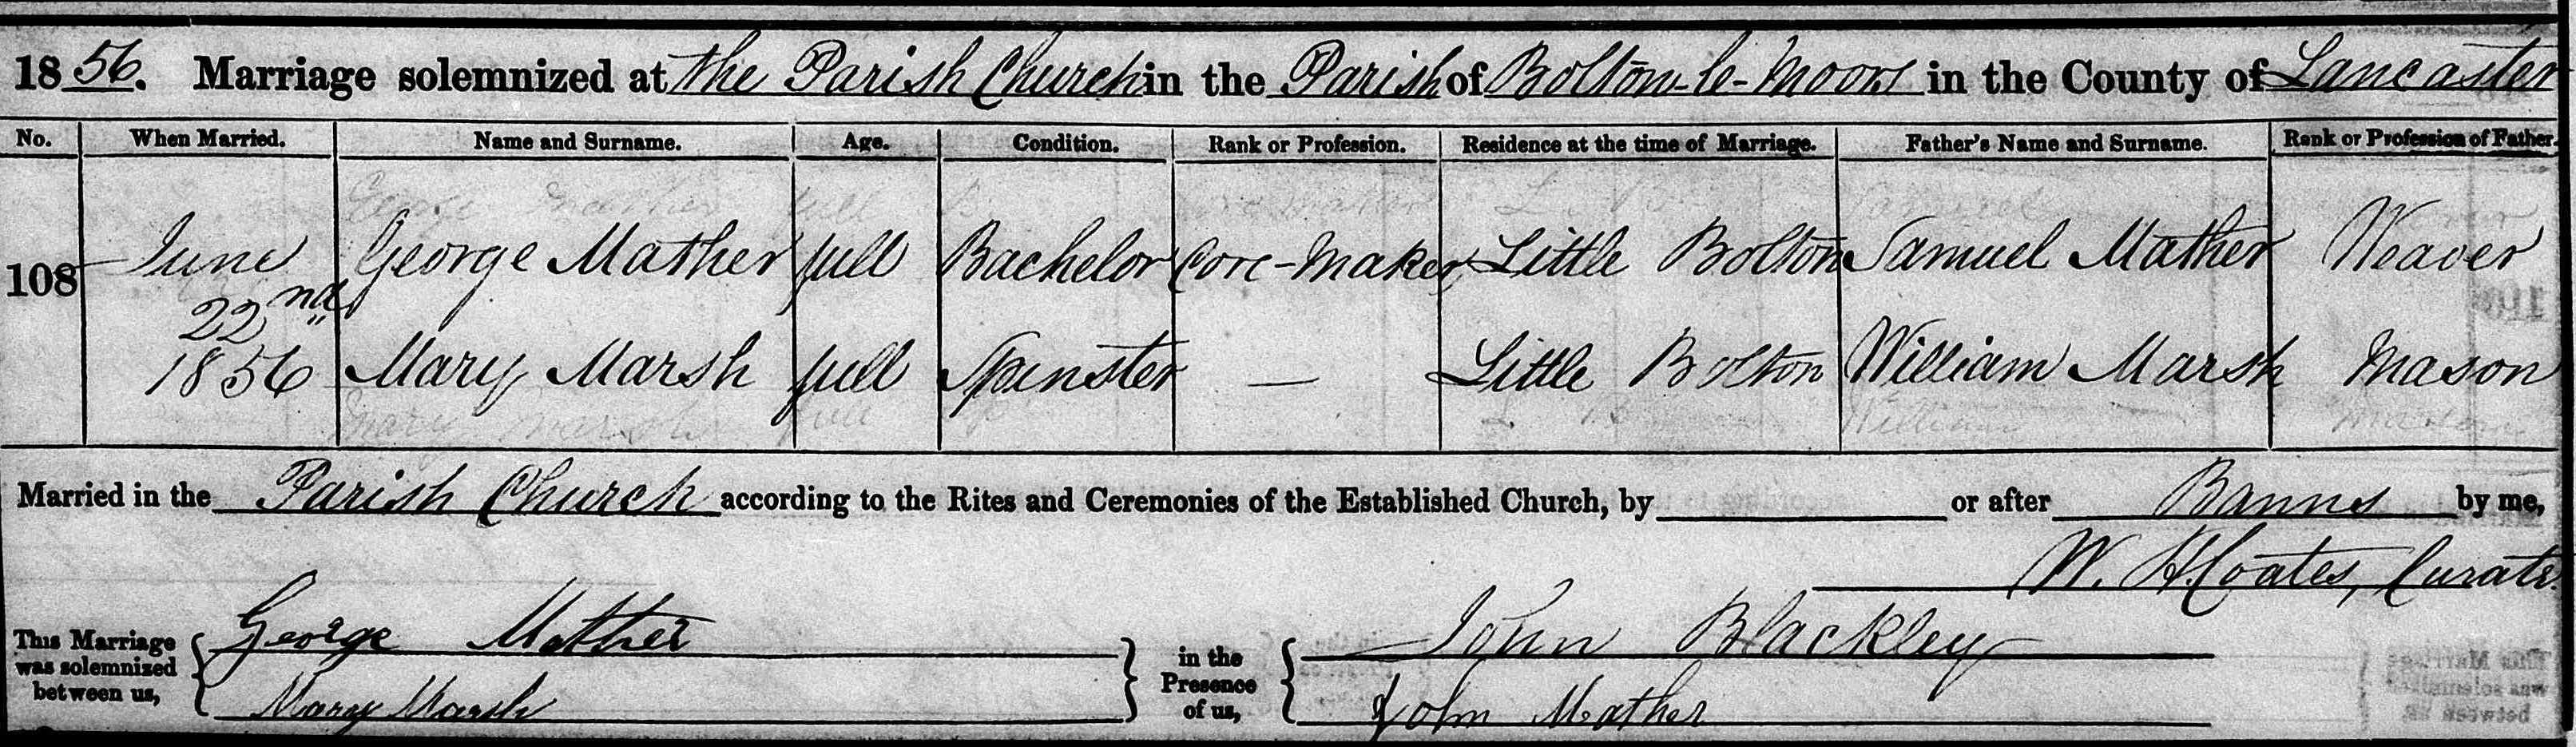 1856. Marriage solemnized at the Parish Church in the Parish of Bolton-le-Moors in the County of Lancaster
No. When Married. Name and Surname. Age. Condition. Rank or Profession. Residence at the time of Marriage. Father's Name and Surname. Rank or Profession of Father.
108 June 22nd 1856 George Mather full Bachelor Core-Maker Little Bolton Samuel Mather Weaver
Mary Marsh full Spinster — Little Bolton William Marsh Mason
Married in the Parish Church according to the Rites and Ceremonies of the Established Church, by or after Banns by me,
W. H. Coates, Curate.
This Marriage was solemnized between us, George Mather in the Presence of us, John Blackley
Mary Marsh John Mather